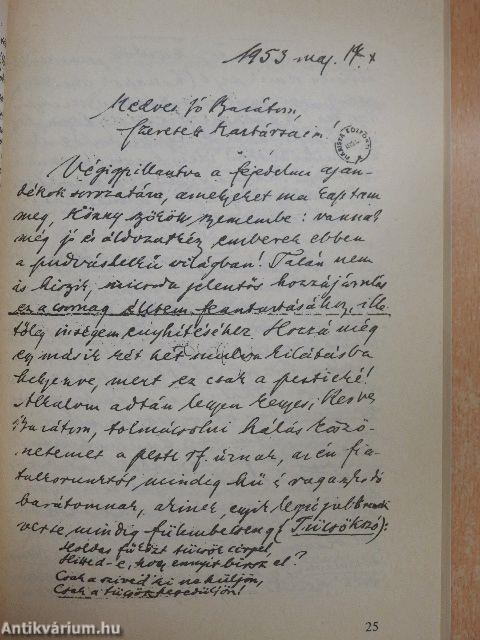 1953 maj. 14.
Kedves jó Barátom,
Szeretett Kartársaim!
Végigpillantva a fejedelmi aján-
dékok sorozatára, amelyeket ma kaptam
meg, könny szökött szemembe: vannak
még jó és áldozatkész emberek ebben
a pudváslelkű világban! Talán nem
is hiszik, micsoda jelentős hozzájárulás
ez a csomag életem fenntartásához, ille-
tőleg inségem enyhítéséhez. Hozzá még
egy másik két hét mulva kilátásba
helyezve, mert ez csak a pestieké!
Alkalom adtán legyen kegyes, Kedves
Barátom, tolmácsolni hálás köszö-
netemet a pesti úrnak, az én fia-
talkorunktól mindig hű és ragaszkodó
barátomnak, akinek egyik legszebb
verse mindig fülembe cseng (Tücsökszó):
Holdas fűközt tücsök cirpel,
Hitted-e, hogy ennyit birsz el?
Csak a szived ki ne hüljön,
Csak a tücsök hegedüljön!
25
Antikvárium.hu